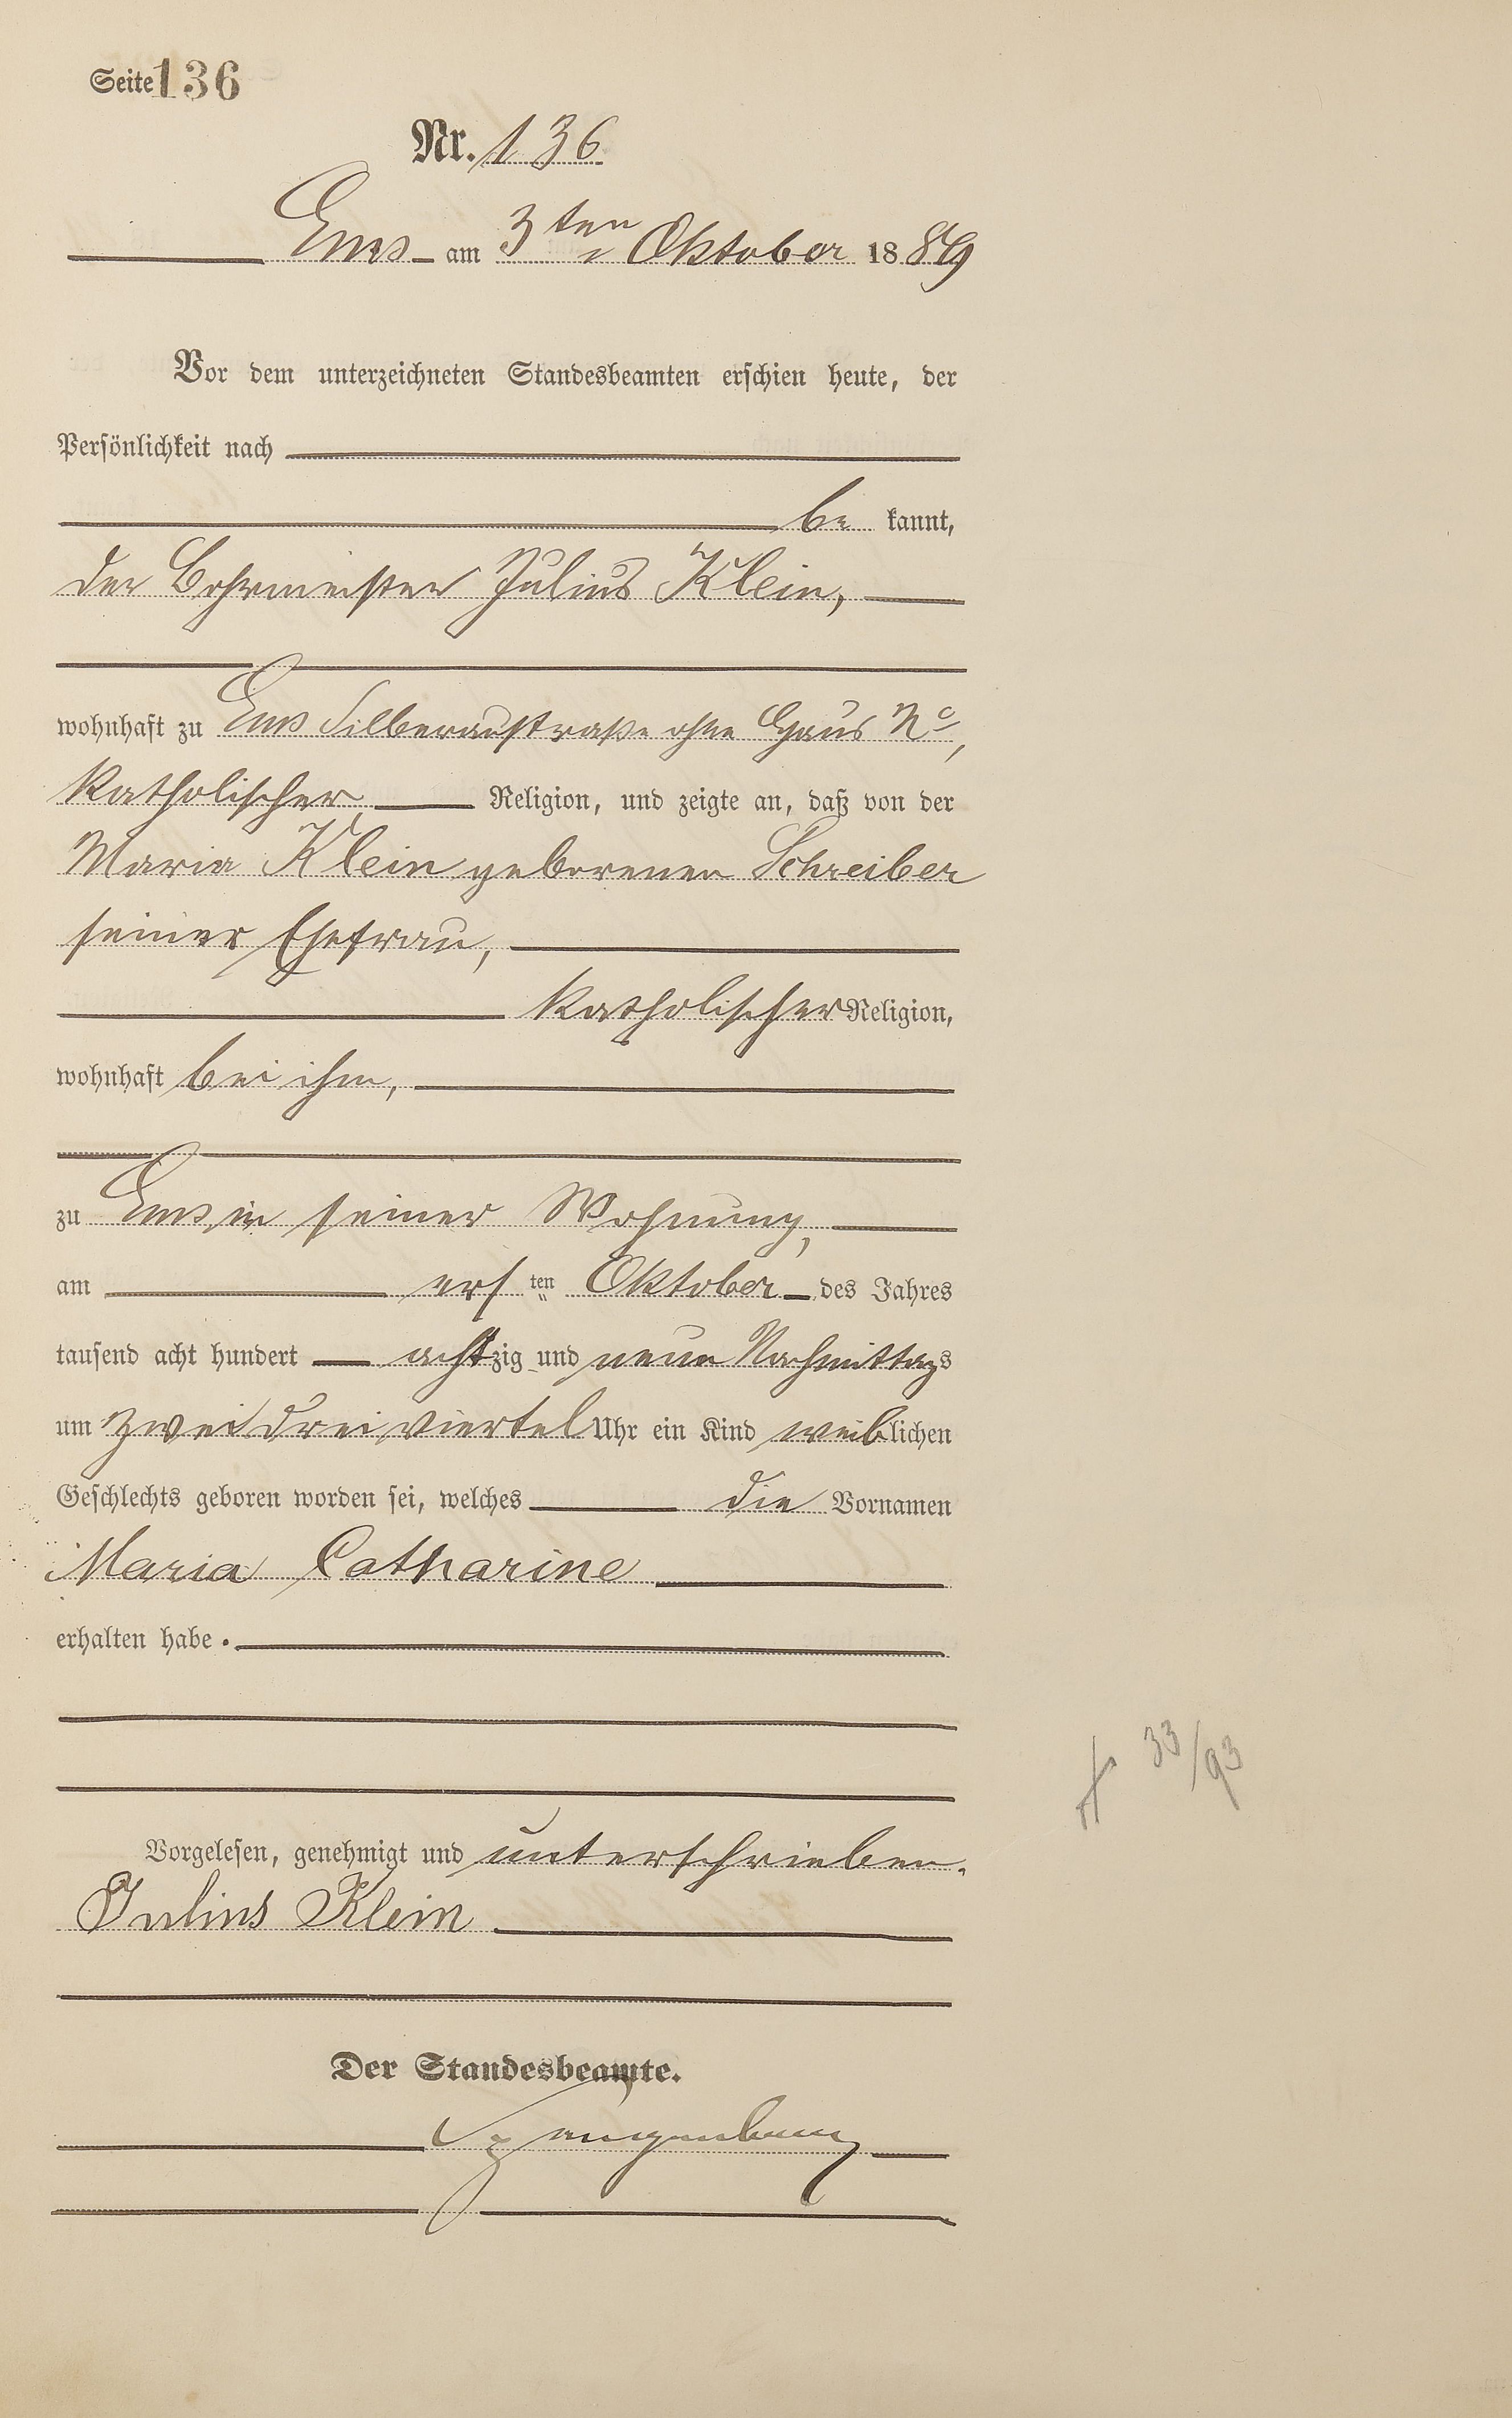 Seite 136
Nr. 136
Ems am 3ten Oktober 1889
Vor dem unterzeichneten Standesbeamten erschien heute, der
Persönlichkeit nach
be kannt,
der Bohrmeister Julius Klein,
wohnhaft zu Ems Silberaustraße ohne Haus No,
katholischer Religion, und zeigte an, daß von der
Maria Klein geborenen Schreiber
seiner Ehefrau,
katholischer Religion,
wohnhaft bei ihm,
zu Ems in seiner Wohnung,
am ersten Oktober des Jahres
tausend acht hundert achtzig und neun Nachmittags
um zwei drei viertel Uhr ein Kind weiblichen
Geschlechts geboren worden sei, welches die Vornamen
Maria Catharine
erhalten habe.
Vorgelesen, genehmigt und unterschrieben.
Julius Klein
Der Standesbeamte.
33/93